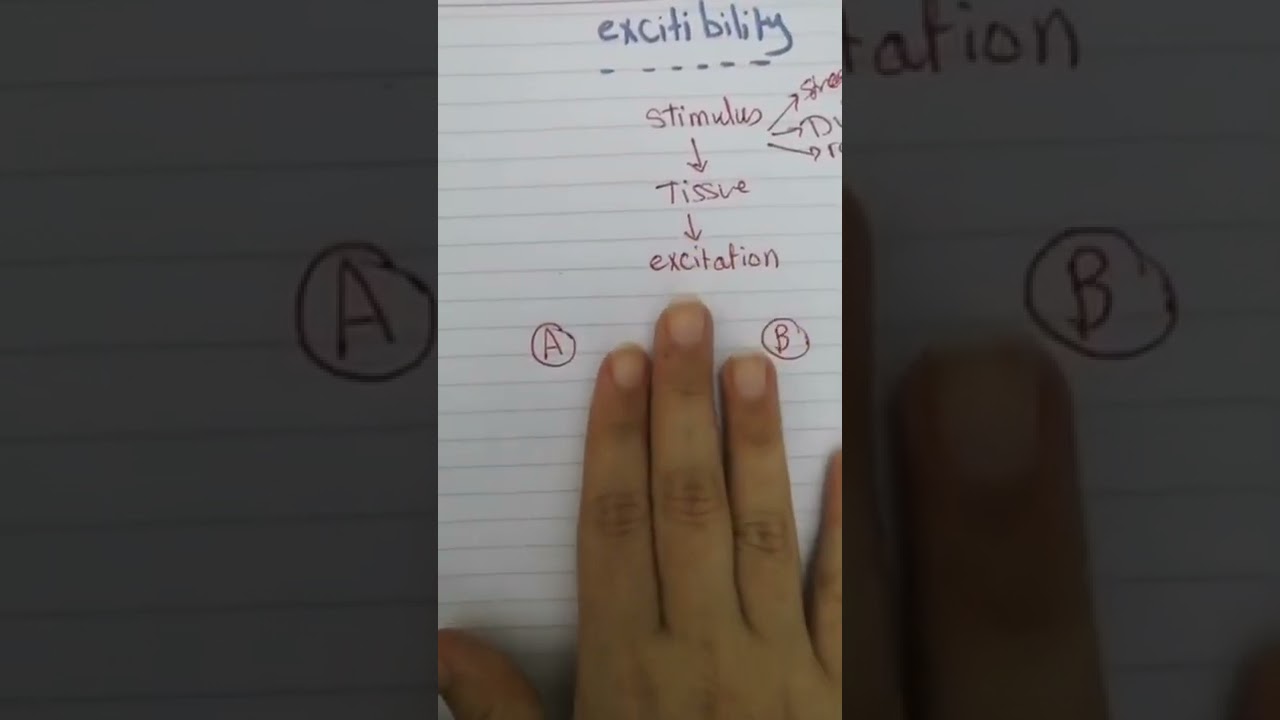 excitibility
stimulus
Tissue
excitation
A B